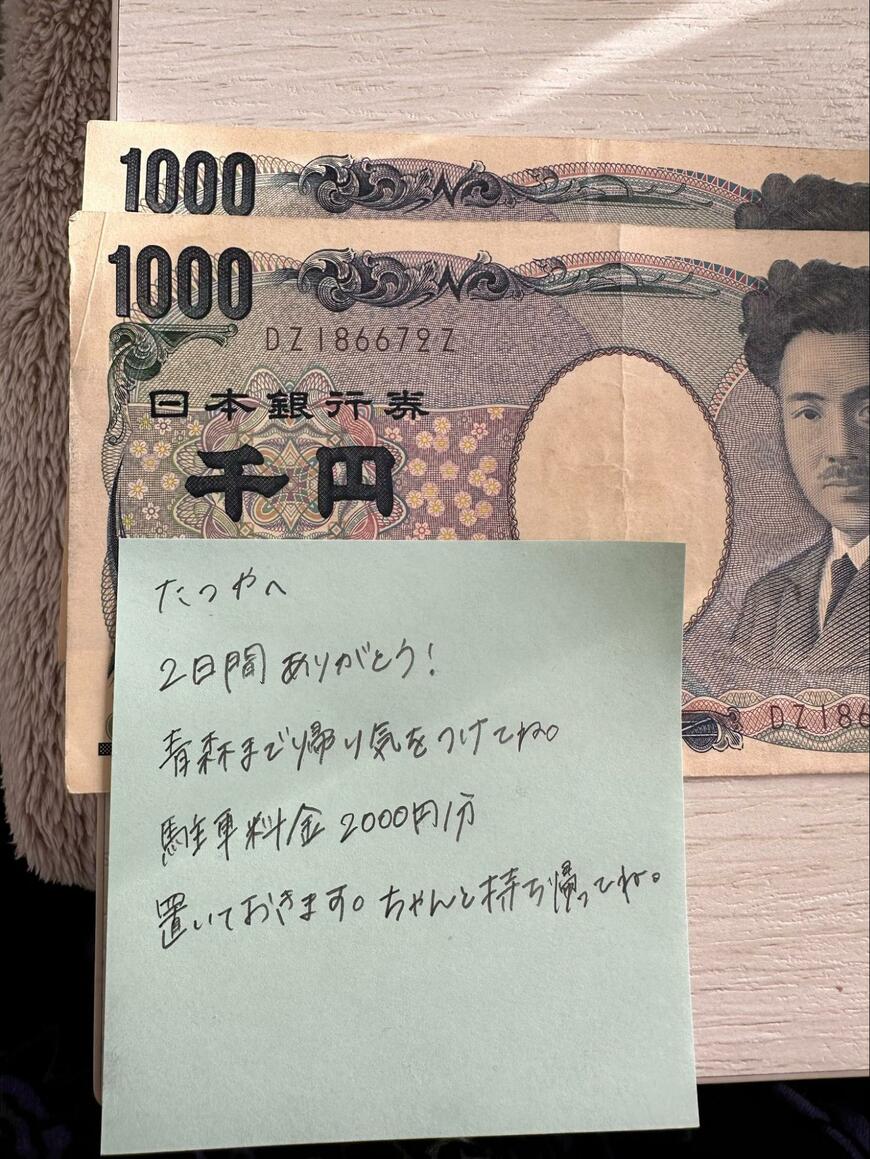 1000
1000
DZ186672Z
日本銀行券
千円
DZ186
たつやへ
2日間ありがとう!
青森まで帰り気をつけてね。
駐車料金2000円分
置いておきます。ちゃんと持ち帰ってね。